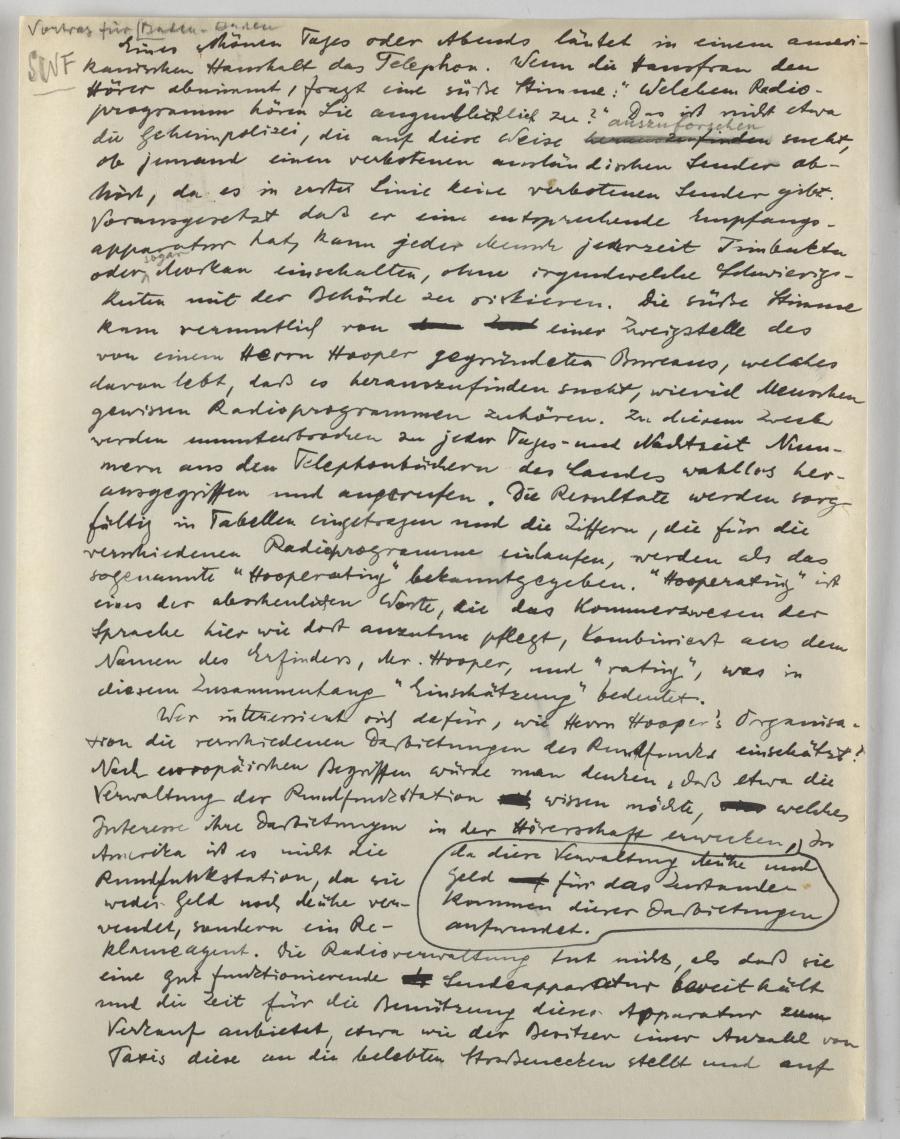 Vortrag für Baden-Baden
SWF
Eines schönen Tages oder Abends läutet in einem ameri-
kanischen Haushalt das Telephon. Wenn die Hausfrau den
Hörer abnimmt, fragt eine süße Stimme: "Welchem Radio-
programm hören Sie augenblicklich zu?" Das ist nicht etwa
auszuforschen
die Geheimpolizei, die auf diese Weise herauszufinden sucht,
ob jemand einen verbotenen ausländischen Sender ab-
hört, da es in erster Linie keine verbotenen Sender gibt.
Vorausgesetzt daß er eine entsprechende Empfangs-
apparatur hat, kann jeder Mensch jederzeit Timbuktu
sogar
oder Moskau einschalten, ohne irgendwelche Schwierig-
keiten mit der Behörde zu riskieren. Die süße Stimme
kam vermutlich von einer Zweigstelle des
von einem Herrn Hooper gegründeten Bureaus, welches
davon lebt, daß es herauszufinden sucht, wieviel Menschen
gewissen Radioprogrammen zuhören. Zu diesem Zweck
werden ununterbrochen zu jeder Tages- und Nachtzeit Num-
mern aus den Telephonbüchern des Landes wahllos her-
ausgegriffen und angerufen. Die Resultate werden sorg
fältig in Tabellen eingetragen und die Ziffern, die für die
verschiedenen Radioprogramme einlaufen, werden als das
sogenannte "Hooperating" bekanntgegeben. "Hooperating" ist
eines der abscheulichen Worte, die das Kommerzwesen der
Sprache hier wie dort anzutun pflegt, kombiniert aus dem
Namen des Erfinders, Mr. Hooper, und "rating", was in
diesem Zusammenhang "Einschätzung" bedeutet.
Wer interessiert sich dafür, wie Herrn Hooper's Organisa-
tion die verschiedenen Darbietungen des Rundfunks einschätzt?
Nach europäischen Begriffen würde man denken, daß etwa die
Verwaltung der Rundfunkstation wissen möchte, welches
Interesse ihre Darbietungen in der Hörerschaft erwecken, In
da diese Verwaltung Mühe und
Geld für das Zustande
kommen dieser Darbietungen
aufwendet.
Amerika ist es nicht die
Rundfunkstation, da sie
weder Geld noch Mühe ver-
wendet, sondern ein Re-
klameagent. Die Radioverwaltung tut nichts, als daß sie
eine gut funktionierende Sendeapparatur bereit hält
und die Zeit für die Benützung dieser Apparatur zum
Verkauf anbietet, etwa wie der Besitzer einer Anzahl von
Taxis diese an die belebten Straßenecken stellt und auf